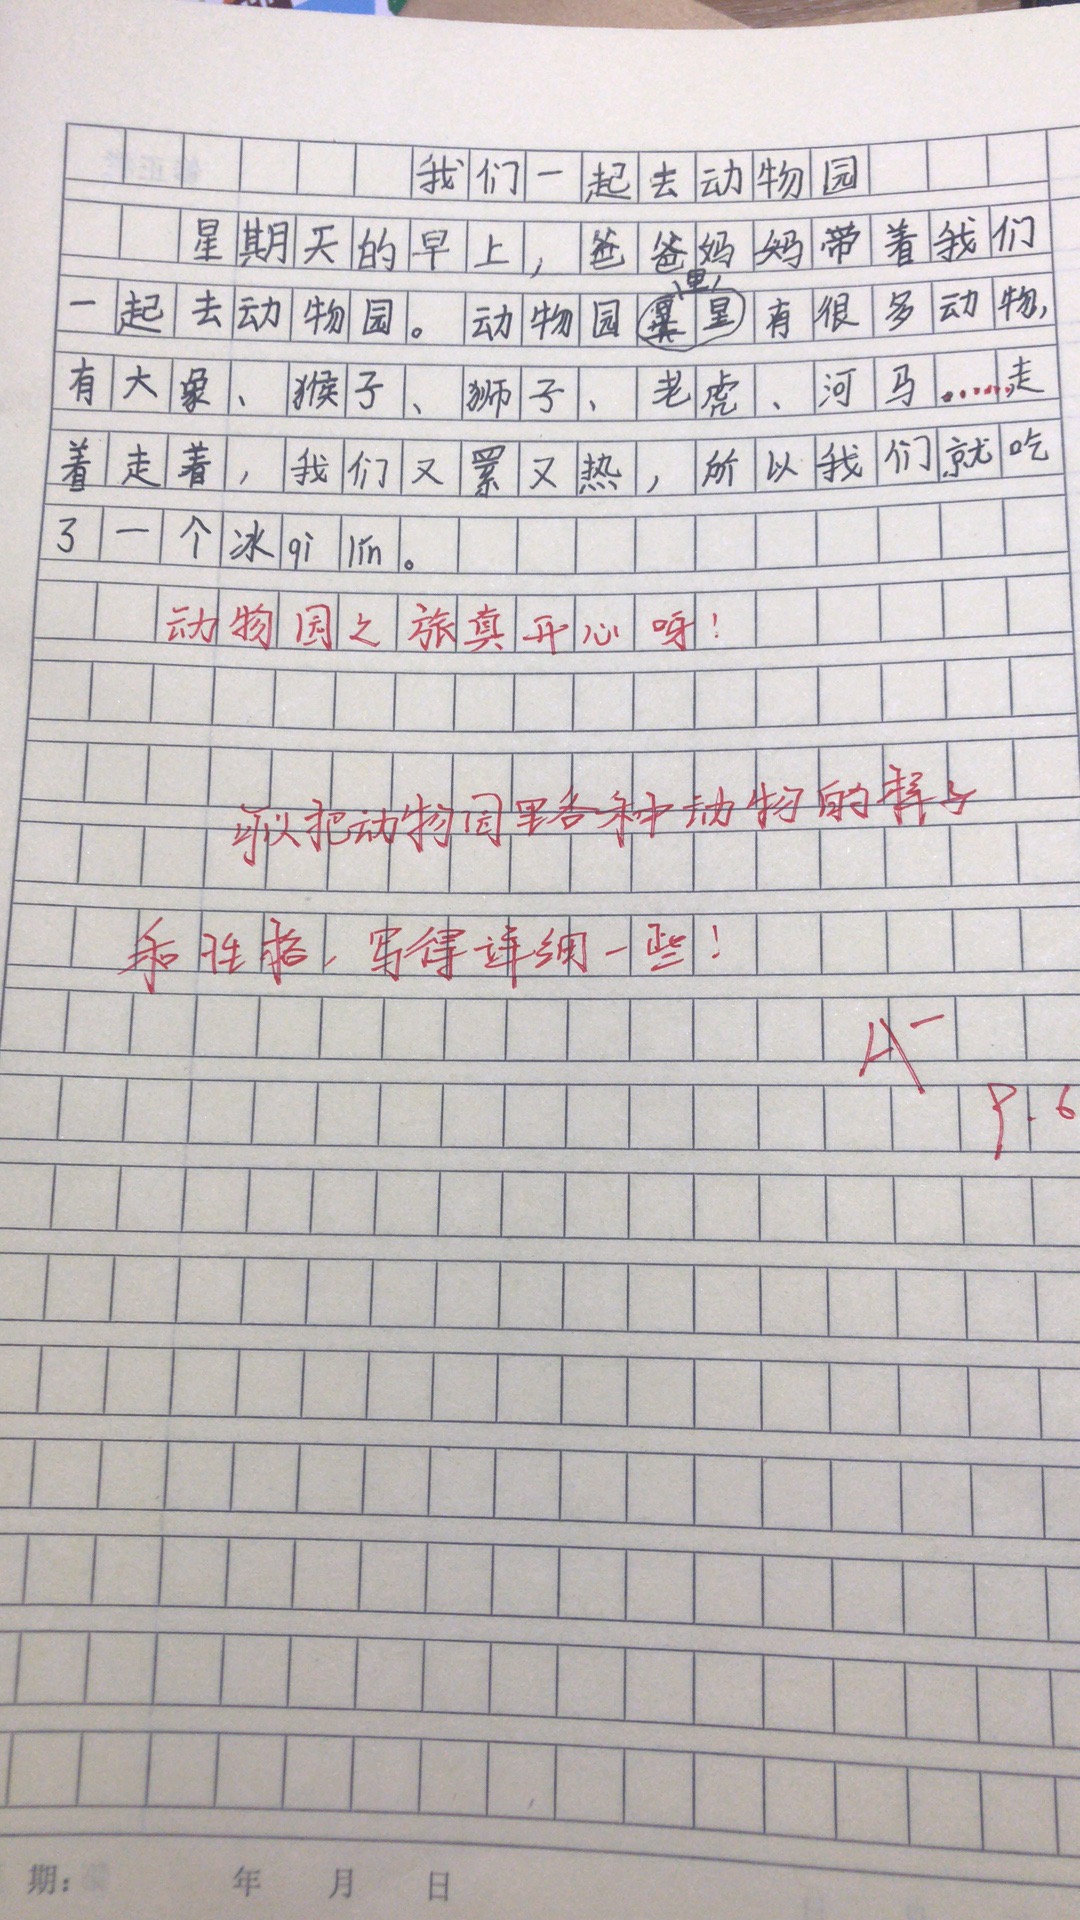 我们一起去动物园
星期天的早上，爸爸妈妈带着我们
一起去动物园。动物园里有很多动物，
有大象、猴子、狮子、老虎、河马……走
着走着，我们又累又热，所以我们就吃
了一个冰qi lin。
动物园之旅真开心呀！
可以把动物园里各种动物的样子
和性格，写得详细一些！
A-
9.6
期：
年 月 日